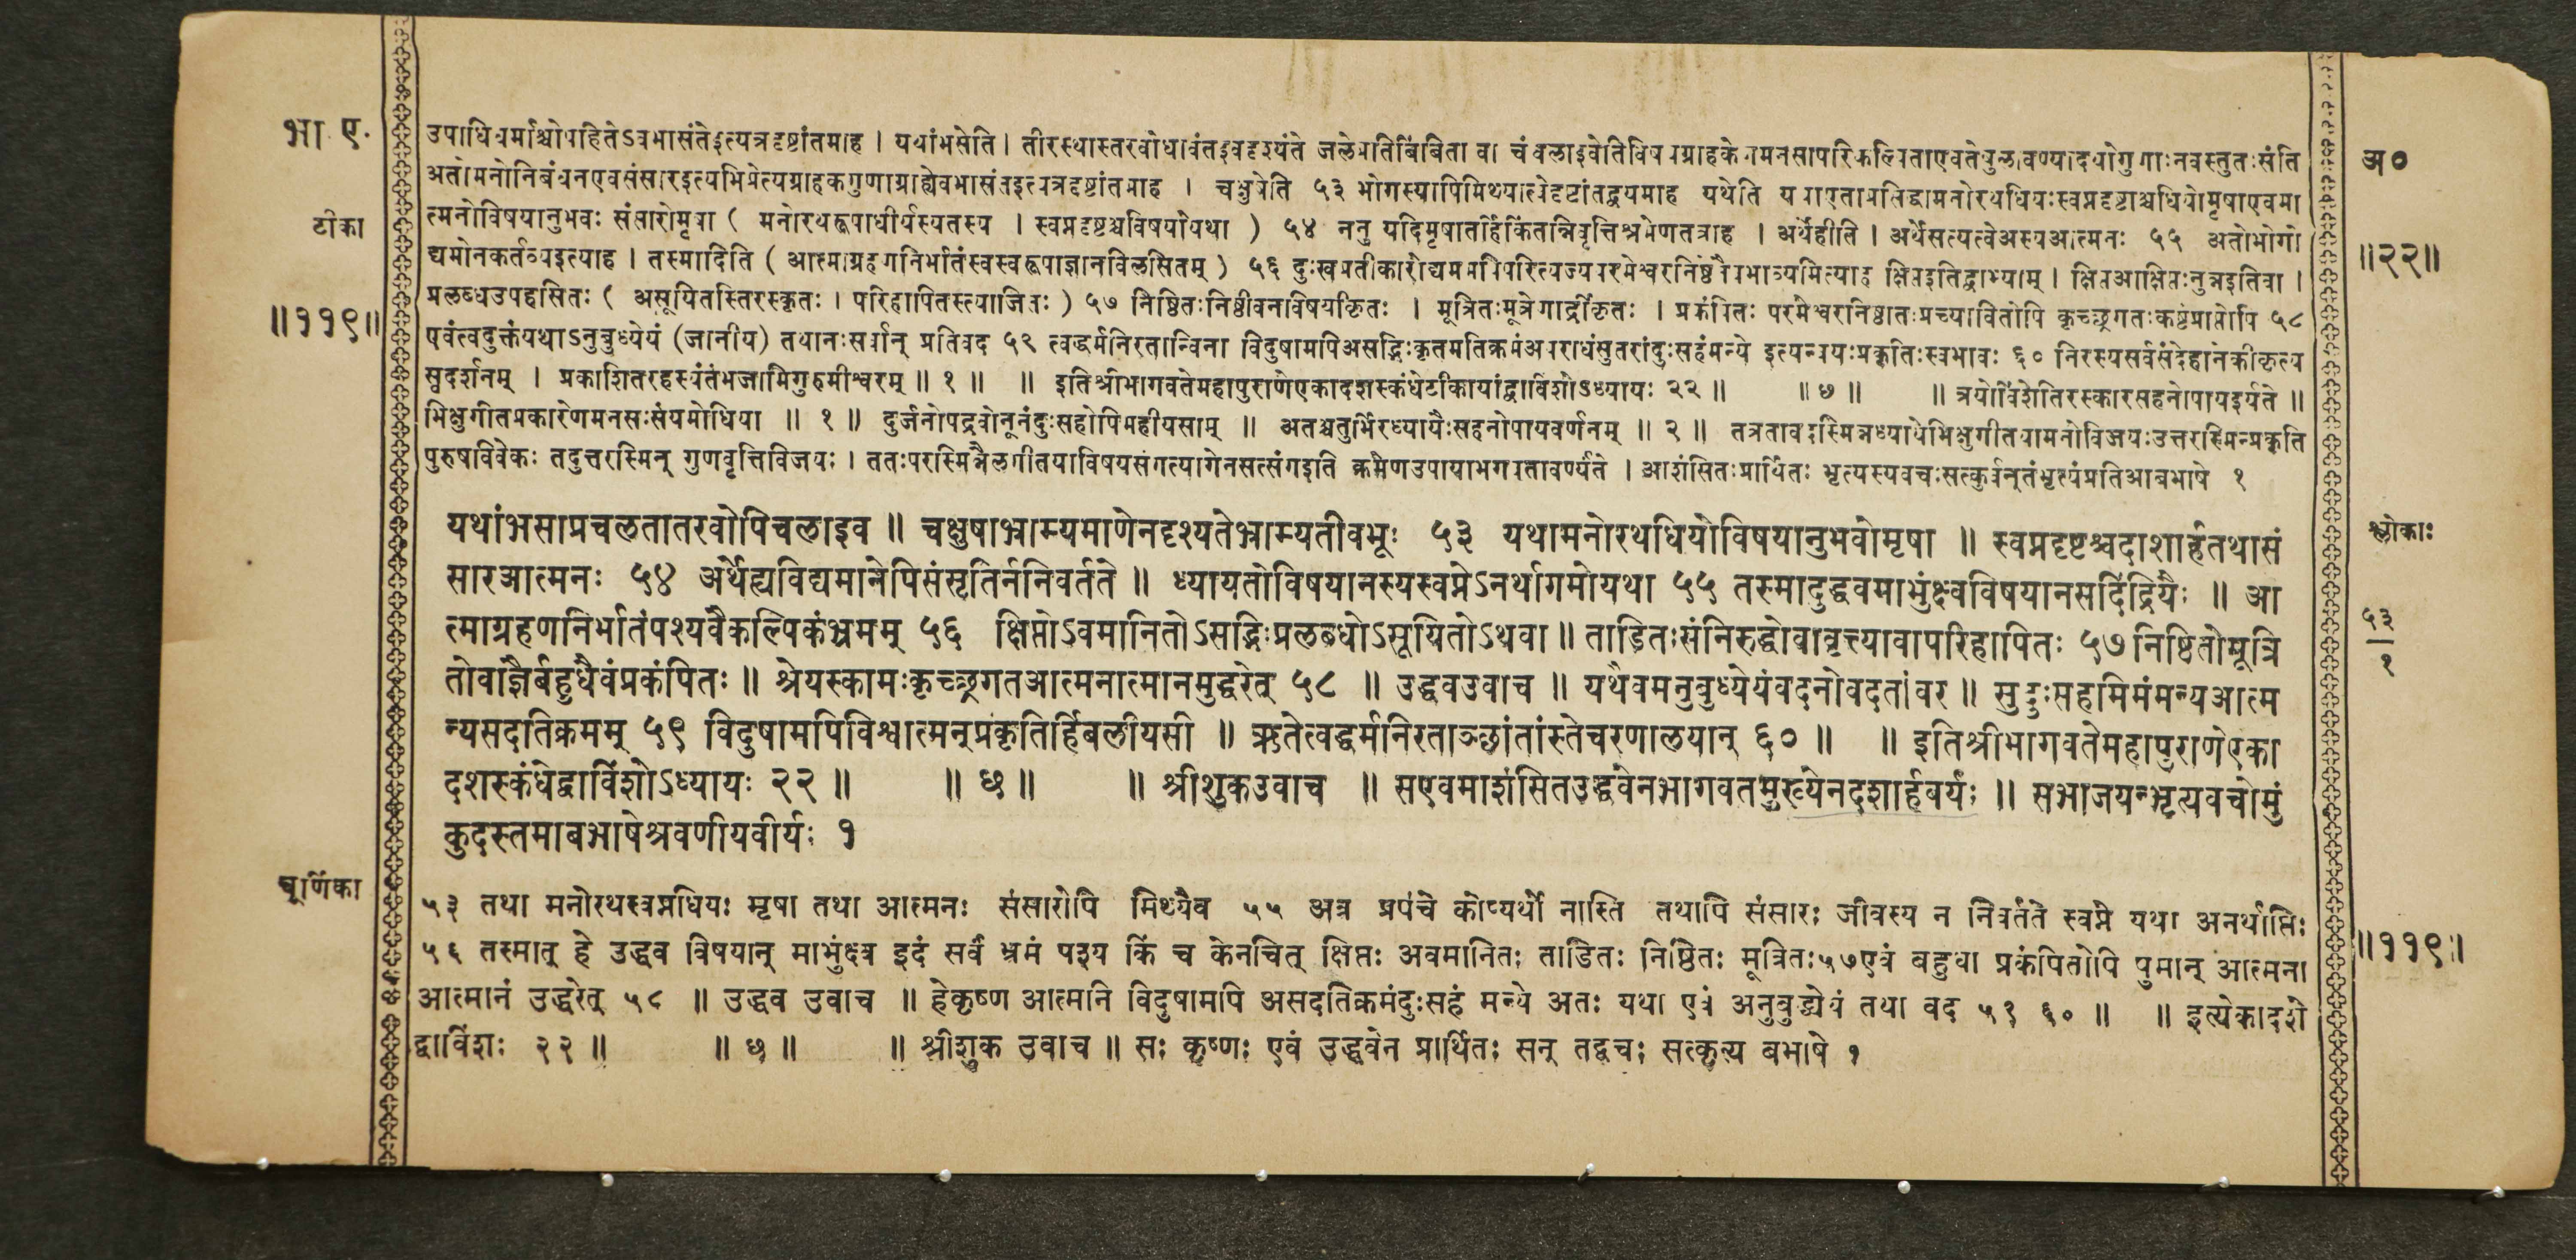 भा ए.
टीका
॥११९॥
उपाधिधर्माश्चोपहितेऽवभासंतेइत्यत्रदृष्टांतमाह । यथांभसेति । तीरस्थास्तरवोधावंतइवदृश्यंते जलेप्रतिबिंबिता वा चंचलाइवेतिविषयग्राहकेणमनसापरिकल्पिताएवतेपुलावण्यादयोगुणाःनवस्तुतःसंति
अतोमनोनिबंधनएवसंसारइत्यभिप्रेत्यग्राहकगुणाग्राह्येवभासंतइत्यत्रदृष्टांतमाह । चक्षुषेति ५३ भोगस्यापिमिथ्यात्वेदृष्टांतद्वयमाह यथेति
त्मनोविषयानुभवः संसारोमृषा ( मनोरथरूपाधीर्यस्यतस्य । स्वप्नदृष्टश्चविषयोयथा ) ५४ ननु यदिमृषातर्हिकिंतन्निवृत्तिश्रमेणतत्राह । अर्थेहीति । अर्थेसत्यत्वेअस्यआत्मनः ५५ अतोभोगो
द्यमोनकर्तव्यइत्याह । तस्मादिति ( आत्माग्रहणनिर्भातंस्वस्वरूपाज्ञानविलसितम् ) ५६ दुःखप्रतीकारोद्यममपिपरित्यज्यपरमेश्वरनिष्ठेनैवभाव्यमित्याह क्षिप्तइतिद्वाभ्याम् । क्षिप्तआक्षिप्तःनुन्नइतिवा ।
प्रलब्धउपहसितः ( असूयितस्तिरस्कृतः । परिहापितस्त्याजितः ) ५७ निष्ठितःनिष्ठीवनविषयीकृतः । मूत्रितःमूत्रेणार्द्रीकृतः । प्रकंपितः परमेश्वरनिष्ठातःप्रच्यावितोपि कृच्छ्रगतःकष्टंप्राप्तोपि ५८
एवंत्वदुक्तंयथाऽनुबुध्येयं (जानीय) तथानःसर्वान् प्रतिवद ५९ त्वद्धर्मनिरतान्विना विदुषामपिअसद्भिःकृतमतिक्रमंअपराधंसुतरांदुःसहंमन्ये इत्यन्वयःप्रकृतिःस्वभावः ६० निरस्यसर्वसंदेहानेकीकृत्य
सुदर्शनम् । प्रकाशितरहस्यंतंभजामिगुरुमीश्वरम् ॥ १ ॥ ॥ इतिश्रीभागवतेमहापुराणेएकादशस्कंधेटीकायांद्वाविंशोऽध्यायः २२ ॥ ॥ ७ ॥ ॥ त्रयोविंशेतिरस्कारसहनोपायइर्यते ॥
भिक्षुगीतप्रकारेणमनसःसंयमोधिया ॥ १ ॥ दुर्जनोपद्रवोनूनंदुःसहोपिमहीयसाम् ॥ अतश्चतुर्भिरध्यायैःसहनोपायवर्णनम् ॥ २ ॥ तत्रतावदस्मिन्नध्यायेभिक्षुगीतयामनोविजयःउत्तरस्मिन्प्रकृति
पुरुषविवेकः तदुत्तरस्मिन् गुणवृत्तिविजयः । ततःपरस्मिन्नैलगीतयाविषयसंगत्यागेनसत्संगइति क्रमेणउपायाभगवतावर्ण्यंते । आशंसितःप्रार्थितः भृत्यस्यवचःसत्कुर्वन्तंभृत्यंप्रतिआबभाषे १
यथांभसाप्रचलतातरवोपिचलाइव ॥ चक्षुषाभ्राम्यमाणेनदृश्यतेभ्राम्यतीवभूः ५३ यथामनोरथधियोविषयानुभवोमृषा ॥ स्वप्नदृष्टाश्चदाशार्हतथासं
सारआत्मनः ५४ अर्थेह्यविद्यमानेपिसंसृतिर्ननिवर्तते ॥ ध्यायतोविषयानस्यस्वप्नेऽनर्थागमोयथा ५५ तस्मादुद्धवमाभुंक्ष्वविषयानसदिंद्रियैः ॥ आ
त्माग्रहणनिर्भातंपश्यवैकल्पिकंभ्रमम् ५६ क्षिप्तोऽवमानितोऽसद्भिःप्रलब्धोऽसूयितोऽथवा ॥ ताडितःसंनिरुद्धोवावृत्त्यावापरिहापितः ५७ निष्ठितोमूत्रि
तोवाज्ञैर्बहुधैवंप्रकंपितः ॥ श्रेयस्कामःकृच्छ्रगतआत्मनात्मानमुद्धरेत् ५८ ॥ उद्धवउवाच ॥ यथैवमनुबुध्येयंवदनोवदतांवर ॥ सुदुःसहमिमंमन्यआत्म
न्यसदतिक्रमम् ५९ विदुषामपिविश्वात्मन्प्रकृतिर्हिबलीयसी ॥ ऋतेत्वद्धर्मनिरताञ्छांतांस्तेचरणालयान् ६० ॥ ॥ इतिश्रीभागवतेमहापुराणेएका
दशस्कंधेद्वाविंशोऽध्यायः २२ ॥ ॥ छ ॥ ॥ श्रीशुकउवाच ॥ सएवमाशंसितउद्धवेनभागवतमुख्येनदशार्हवर्यः ॥ सभाजयन्भृत्यवचोमुं
कुदस्तमाबभाषेश्रवणीयवीर्यः १
चूर्णिका
५३ तथा मनोरथस्वप्नधियः मृषा तथा आत्मनः संसारोपि मिथ्यैव ५५ अत्र प्रपंचे कोप्यर्थो नास्ति तथापि संसारः जीवस्य न निवर्तते स्वप्ने यथा अनर्थाप्तिः
५६ तस्मात् हे उद्धव विषयान् माभुंक्ष्व इदं सर्वं भ्रमं पश्य किं च केनचित् क्षिप्तः अवमानितः ताडितः निष्ठितः मूत्रितः५७एवं बहुधा प्रकंपितोपि पुमान् आत्मना
आत्मानं उद्धरेत् ५८ ॥ उद्धव उवाच ॥ हेकृष्ण आत्मनि विदुषामपि असदतिक्रमंदुःसहं मन्ये अतः यथा एवं अनुबुद्ध्येयं तथा वद ५९ ६० ॥ ॥ इत्येकादशे
द्वाविंशः २२ ॥ ॥ छ ॥ ॥ श्रीशुक उवाच ॥ सः कृष्णः एवं उद्धवेन प्रार्थितः सन् तद्वचः सत्कृत्य बभाषे १
अ०
॥२२॥
श्लोकाः
५३
१
॥११९॥